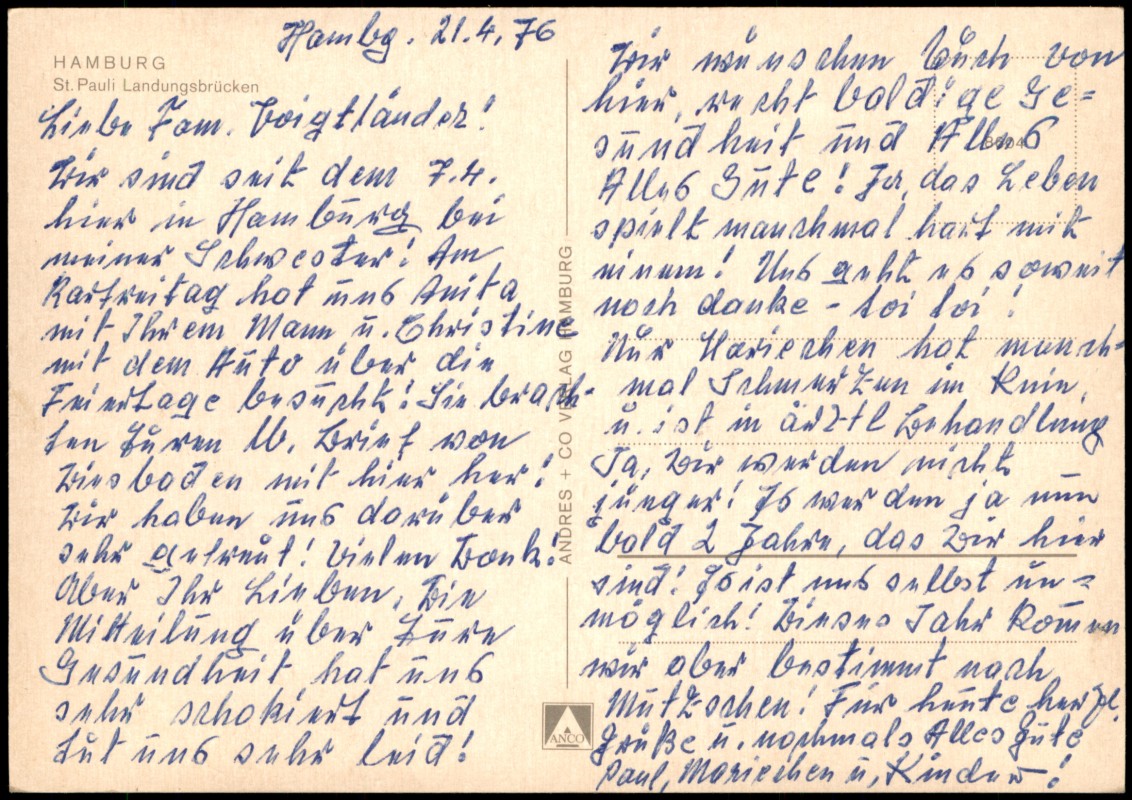 HAMBURG
St. Pauli Landungsbrücken
Hambg. 21.4.76
Liebe Fam. Voigtländer!
Wir sind seit dem 7.4.
hier in Hamburg bei
meiner Schwester! Am
Karfreitag hat uns Anita
mit Ihrem Mann u. Christine
mit dem Auto über die
Feiertage besucht! Sie brach-
ten Euren lb. Brief von
Wiesbaden mit hier her!
Wir haben uns darüber
sehr gefreut! Vielen Dank!
Aber Ihr Lieben, Die
Mitteilung über Eure
Gesundheit hat uns
sehr schokiert und
tut uns sehr leid!
ANDRES + CO VERLAG HAMBURG
ANCO
Wir wünschen Euch von
hier, recht baldige Ge=
sundheit und Alles
Alles Gute! Ja, das Leben
spielt manchmal hart mit
einem! Uns geht es soweit
noch danke - toi toi!
Nur Mariechen hat manch-
mal Schmerzen im Knie,
u. ist in ärztl Behandlung
Ja, Wir werden nicht
jünger! Es werden ja nun
bald 2 Jahre, das Wir hier
sind! Es ist uns selbst un=
möglich! Dieses Jahr komen
wir aber bestimmt nach
Mutzschen! Für heute herzl.
Grüße u. nochmals Alles Gute
Paul, Mariechen u. Kinder!